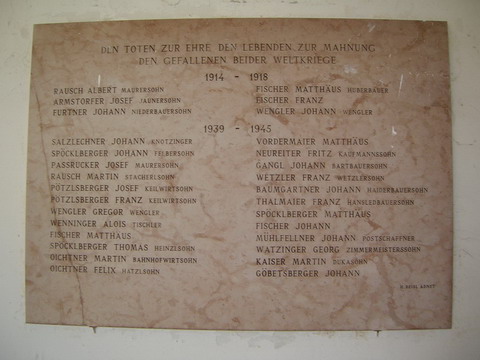 DEN TOTEN ZUR EHRE, DEN LEBENDEN ZUR MAHNUNG
DEN GEFALLENEN BEIDER WELTKRIEGE
1914 - 1918
RAUSCH ALBERT MAURERSOHN
ARMSTORFER JOSEF JAUNERSOHN
FURTNER JOHANN NIEDERBAUERSOHN
FISCHER MATTHÄUS HUBERBAUER
FISCHER FRANZ
WENGLER JOHANN WENGLER
1939 - 1945
SALZLECHNER JOHANN KNOTZINGER
SPÖCKLBERGER JOHANN FELBERSOHN
PASSRUCKER JOSEF MAURERSOHN
RAUSCH MARTIN STACHERLSOHN
PÖTZLSBERGER JOSEF KEILWIRTSOHN
PÖTZLSBERGER FRANZ KEILWIRTSOHN
WENGLER GREGOR WENGLER
WENNINGER ALOIS TISCHLER
FISCHER MATTHÄUS
SPÖCKLBERGER THOMAS HEINZLSOHN
OICHTNER MARTIN BAHNHOFWIRTSOHN
OICHTNER FELIX HATZLSOHN
VORDERMAIER MATTHÄUS
NEUREITER FRITZ KAUFMANNSSOHN
GANGL JOHANN BARTBAUERSOHN
WETZLER FRANZ WETZLERSOHN
BAUMGARTNER JOHANN HAIDERBAUERSOHN
THALMAIER FRANZ HANSLBAUERSOHN
SPÖCKLBERGER MATTHÄUS
FISCHER JOHANN
MÜHLFELLNER JOHANN POSTSCHAFFNER
WATZINGER GEORG ZIMMERMEISTERSSOHN
KAISER MARTIN DUKASOHN
GÖBETSBERGER JOHANN